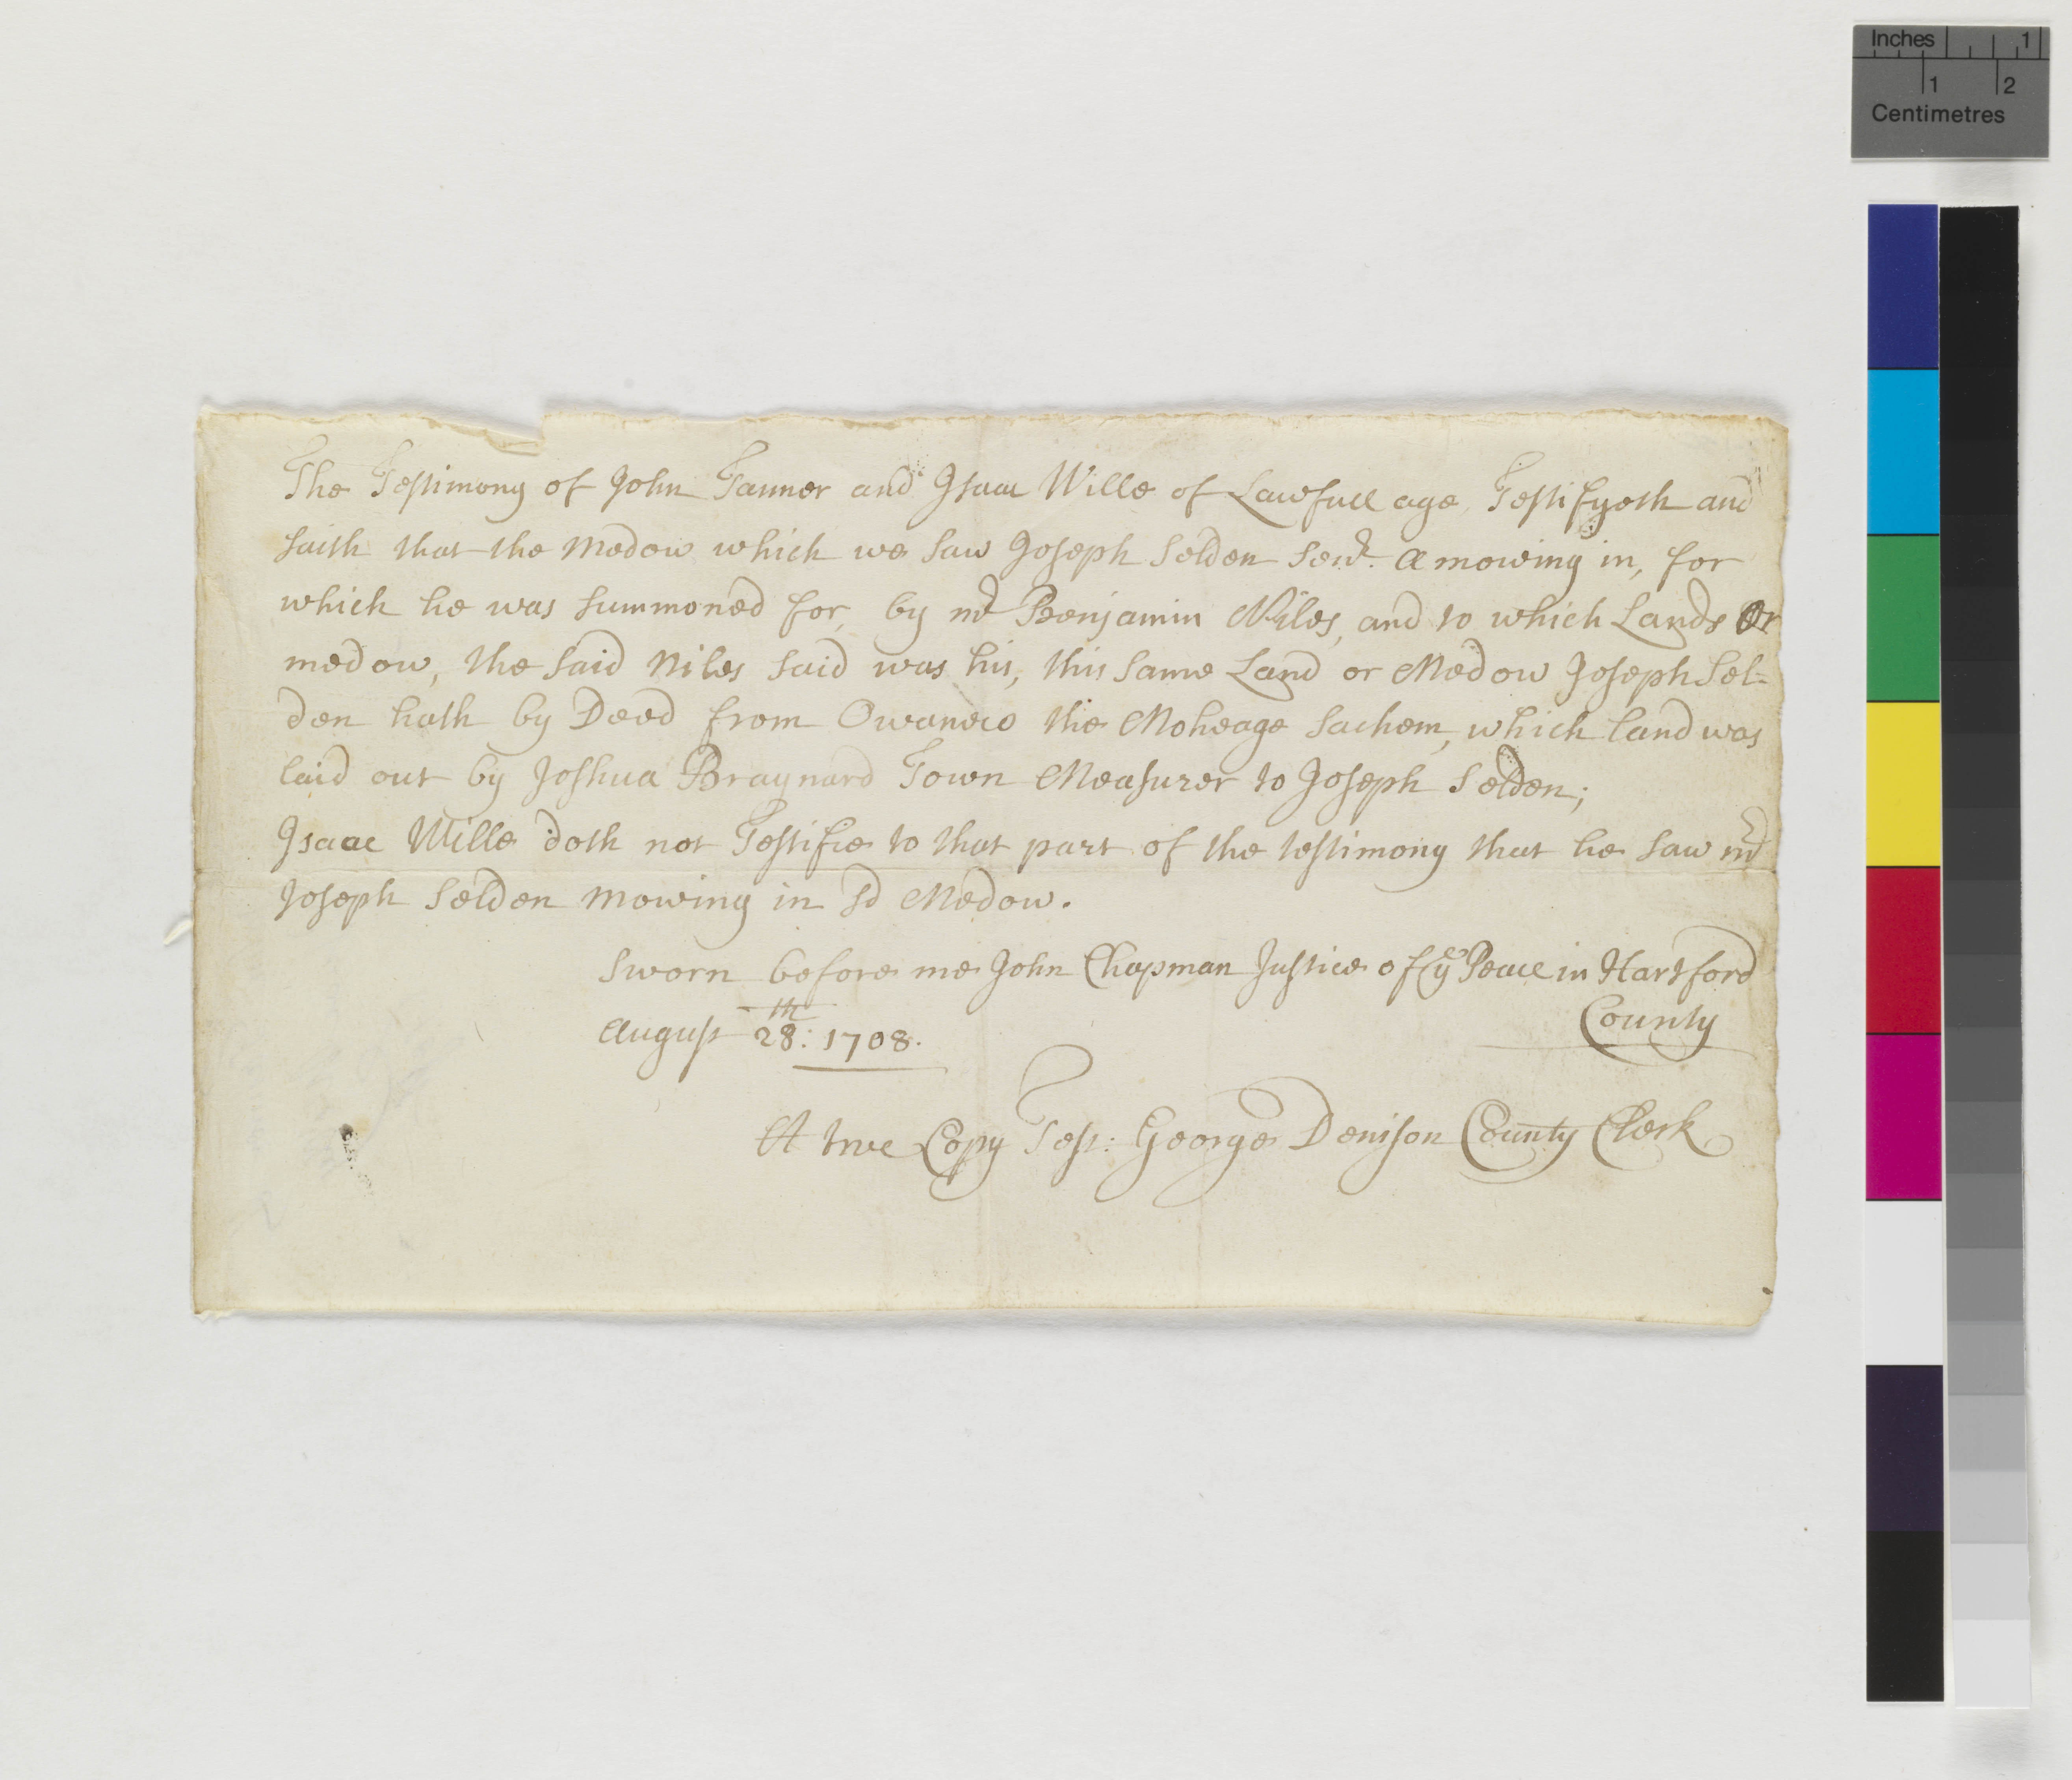 Inches 1
1 2
Centimetres
The Testimony of John Tanner and Isaac Wille of Lawfull age, Testifyeth and
saith that the Medow which we saw Joseph Selden Senr. a mowing in, for
which he was summoned for, by mr Benjamin Niles, and to which Lands Or
medow, the said Niles said was his, this same Land or Medow Joseph Sel=
den hath by Deed from Owaneco the Moheage Sachem, which land was
laid out by Joshua Braynard Town Measurer to Joseph Selden;
Isaac Wille doth not Testifie to that part of the testimony that he saw mr
Joseph Selden mowing in sd Medow.
Sworn before me John Chapman Justice of ye Peace in Hartford
County
August 28th: 1708.
A true Copy Test: George Denison County Clerk